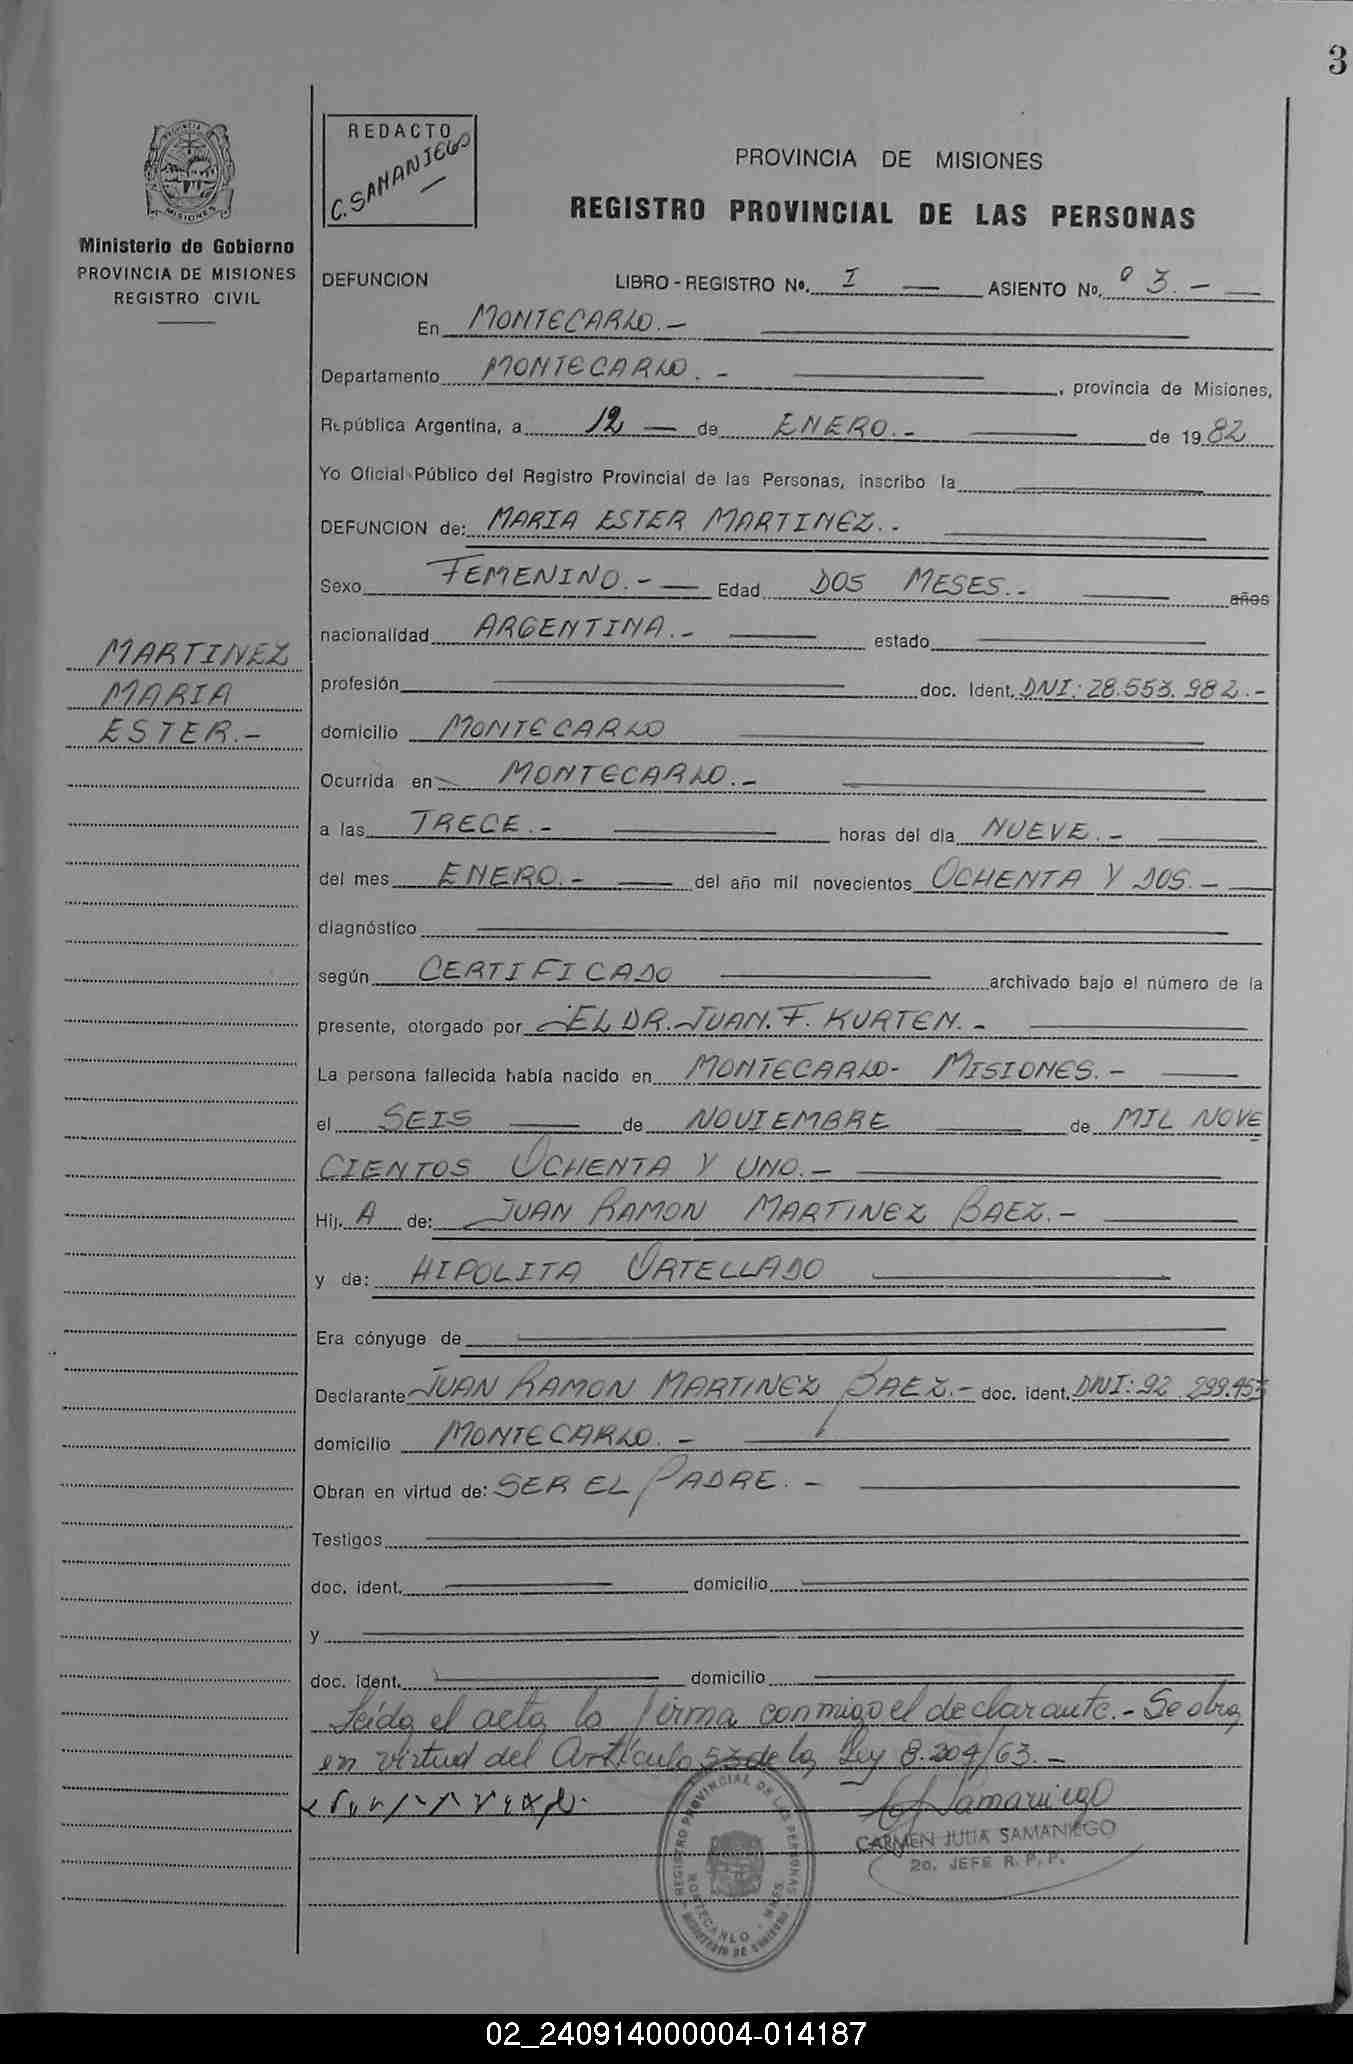 3
REDACTO
C. SAMANIEGO
PROVINCIA DE MISIONES
REGISTRO PROVINCIAL DE LAS PERSONAS
MISIONES
Ministerio de Gobierno
PROVINCIA DE MISIONES
REGISTRO CIVIL
DEFUNCION LIBRO - REGISTRO Nº. I — ASIENTO Nº. º 3. - —
En MONTECARLO. -
Departamento MONTECARLO. - , provincia de Misiones,
República Argentina, a 12 — de ENERO. - de 19 82
Yo Oficial Público del Registro Provincial de las Personas, inscribo la
DEFUNCION de: MARIA ESTER MARTINEZ. -
Sexo FEMENINO. - — Edad DOS MESES. - años
nacionalidad ARGENTINA. - estado
MARTINEZ
MARIA
ESTER. -
profesión doc. Ident. DNI: 28.553.982. -
domicilio MONTECARLO
Ocurrida en MONTECARLO. -
a las TRECE. - horas del día NUEVE. -
del mes ENERO. - — del año mil novecientos OCHENTA Y DOS. -
diagnóstico
según CERTIFICADO archivado bajo el número de la
presente, otorgado por EL DR. JUAN. F. KURTEN. -
La persona fallecida había nacido en MONTECARLO - MISIONES. -
el SEIS — de NOVIEMBRE — de MIL NOVE
CIENTOS OCHENTA Y UNO. -
Hij. A de: JUAN RAMON MARTINEZ BAEZ. -
y de: HIPOLITA ORTELLADO
Era cónyuge de
Declarante JUAN RAMON MARTINEZ BAEZ. - doc. ident. DNI: 92.299.453
domicilio MONTECARLO. -
Obran en virtud de: SER EL PADRE. -
Testigos
doc. ident. domicilio
y
doc. ident. domicilio
Leída el acta, la firma conmigo el declarante. - Se obra
en virtud del Artículo 53 de la Ley 8.204/63. -
Samaniego
CARMEN JULIA SAMANIEGO
2o. JEFE R. P. P.
REGISTRO PROVINCIAL DE LAS PERSONAS
MONTECARLO - MNES.
MINISTERIO DE GOBIERNO
02_240914000004-014187